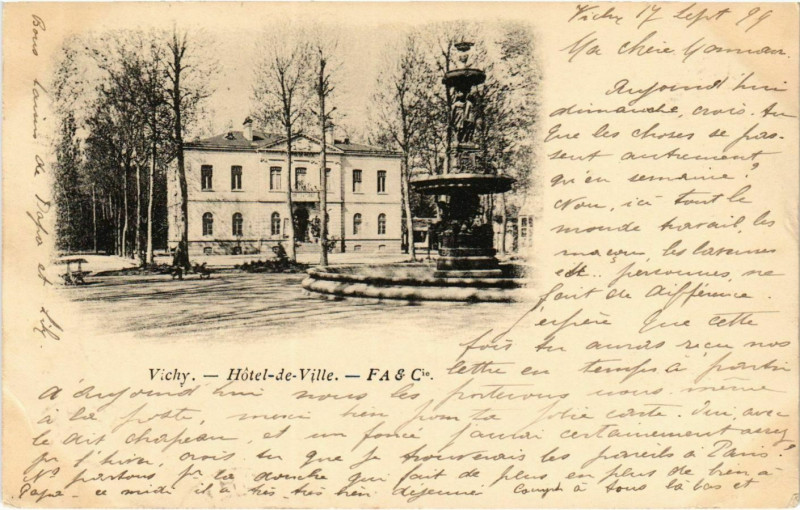 Vichy 17 Sept 99
Ma chère Maman.
Aujourd'hui
dimanche, crois-tu
que les choses se pas-
sent autrement
qu'en semaine?
Non, ici tout le
monde travail, les
maçons, les laveuses
etc.. personnes ne
fait de différence.
J'espère que cette
fois tu auras reçu nos
lettre en temps à partir
Vichy. — Hôtel-de-Ville. — FA & Cie.
d'aujourd'hui nous les porterons nous même
à la poste, merci bien pour ta jolie carte. Oui, avec
le dit chapeau, et un foncé j'aurai certainement assez
pr l'hiver, crois-tu que je trouverais les pareils à Paris?
Ns partons pr la douche qui fait de plus en plus de bien à
Papa - ce midi il a très très bien déjeuné Compli à tous là bas et
Bons baisers de Papa et